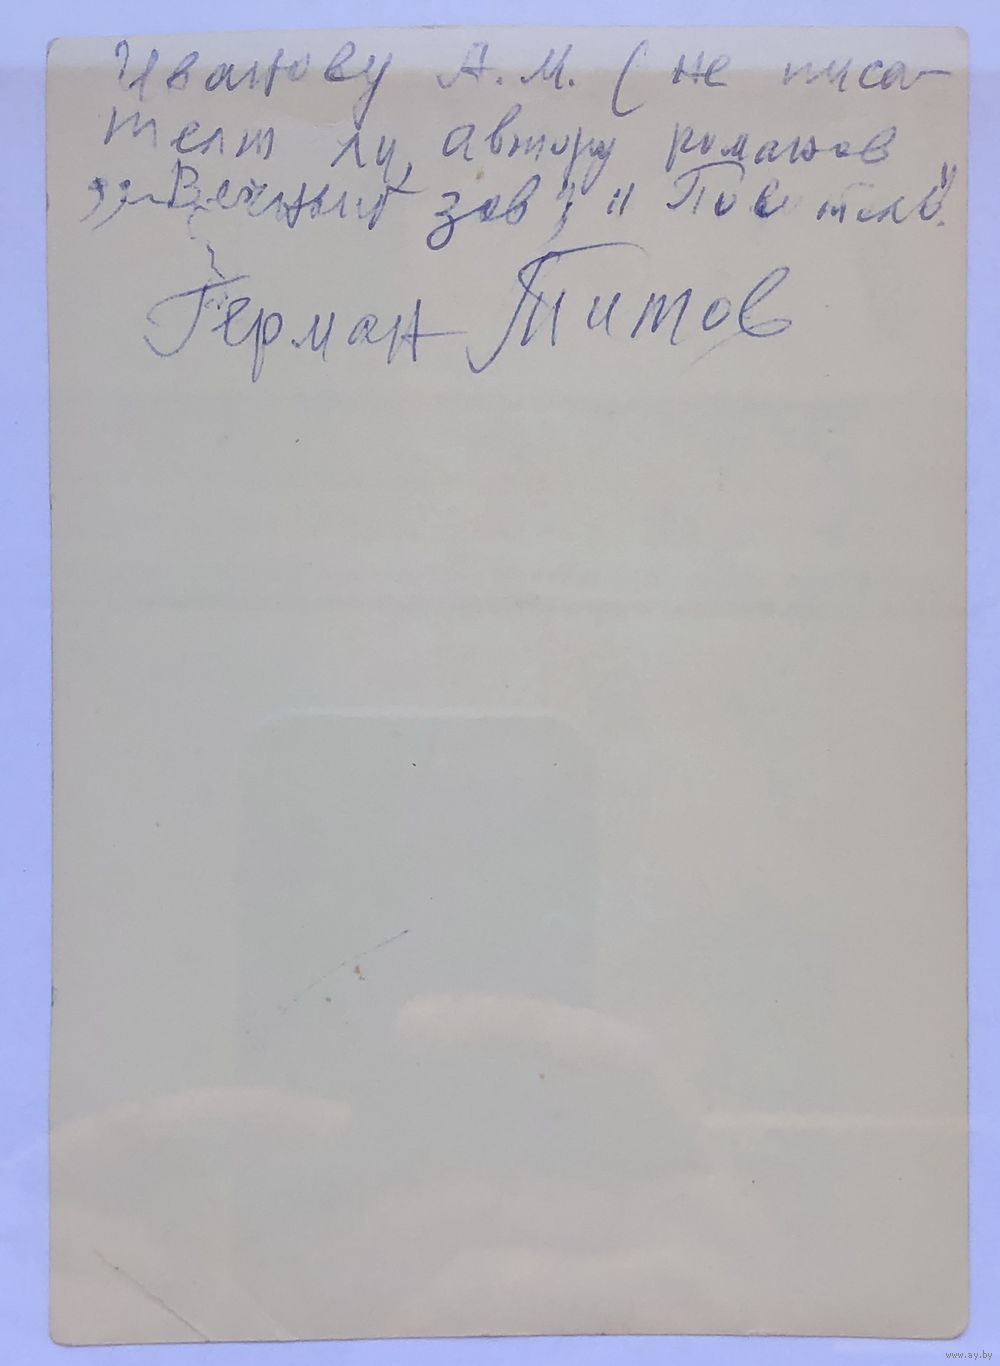 Иванову А. М. (не писа-
телю ли, автору романов
„Вечный зов", "Повитель".
Герман Титов
www.ay.by